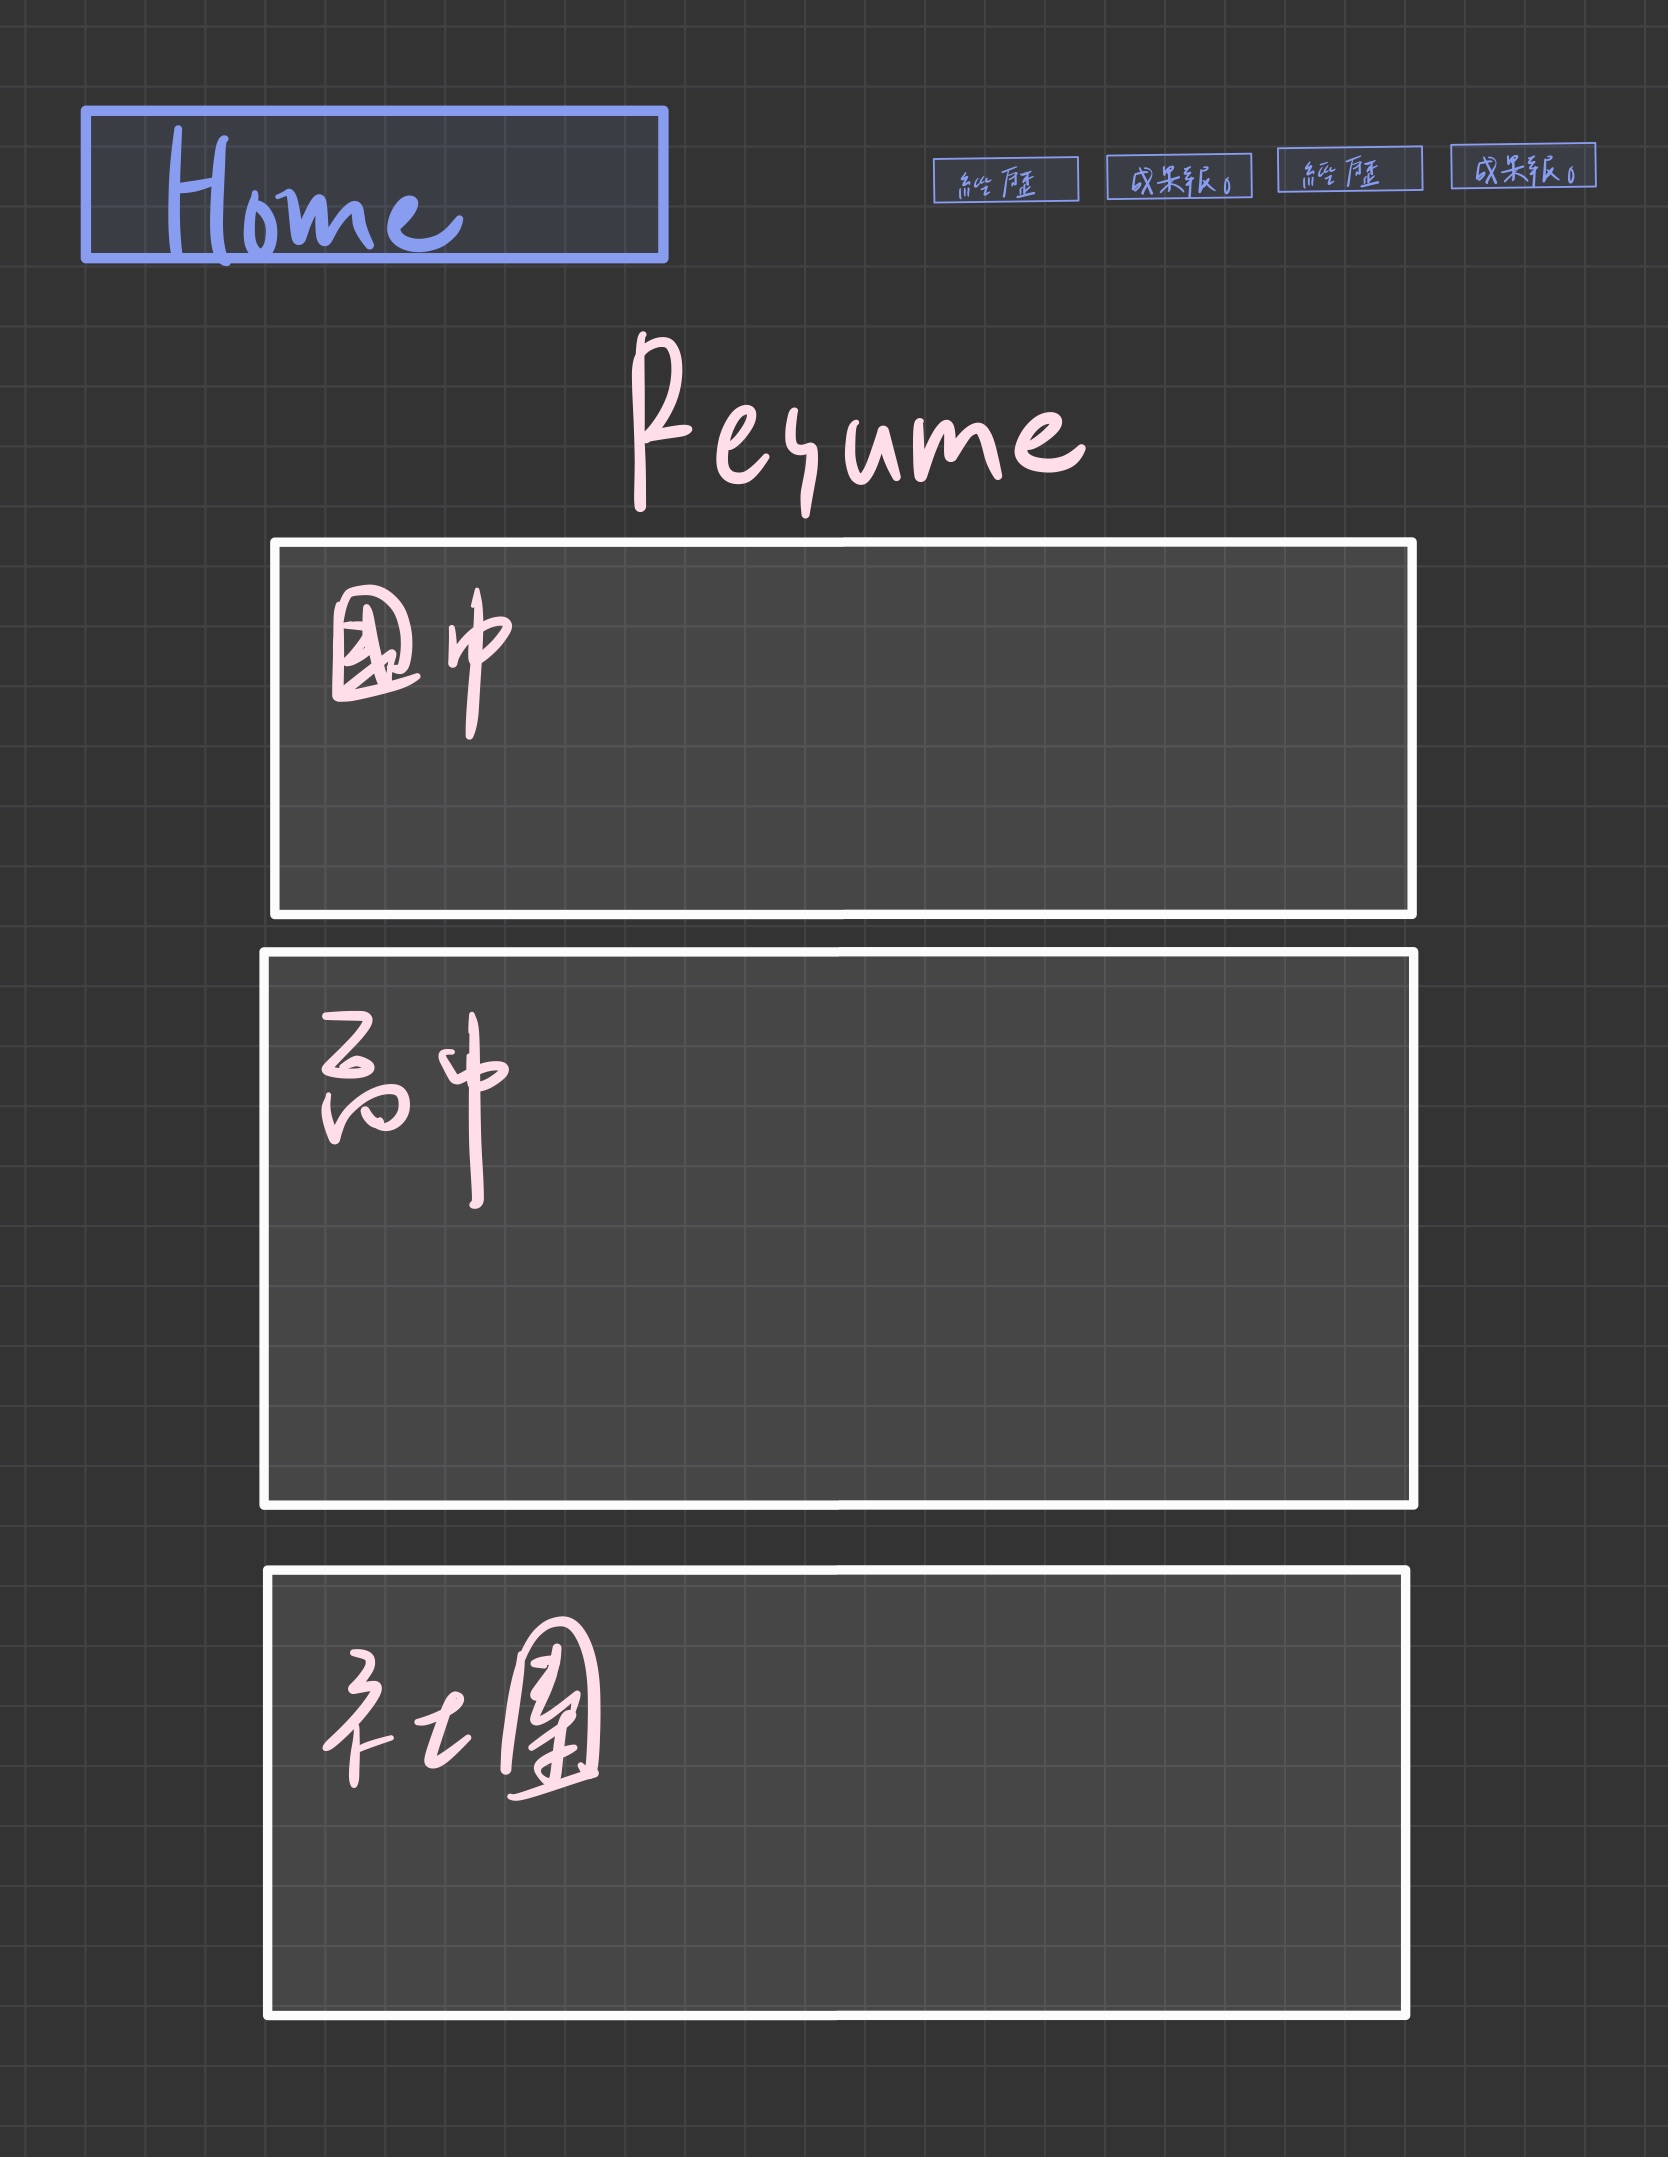 Home
經歷 成果報。 經歷 成果報。
Resume
國中
高中
社團